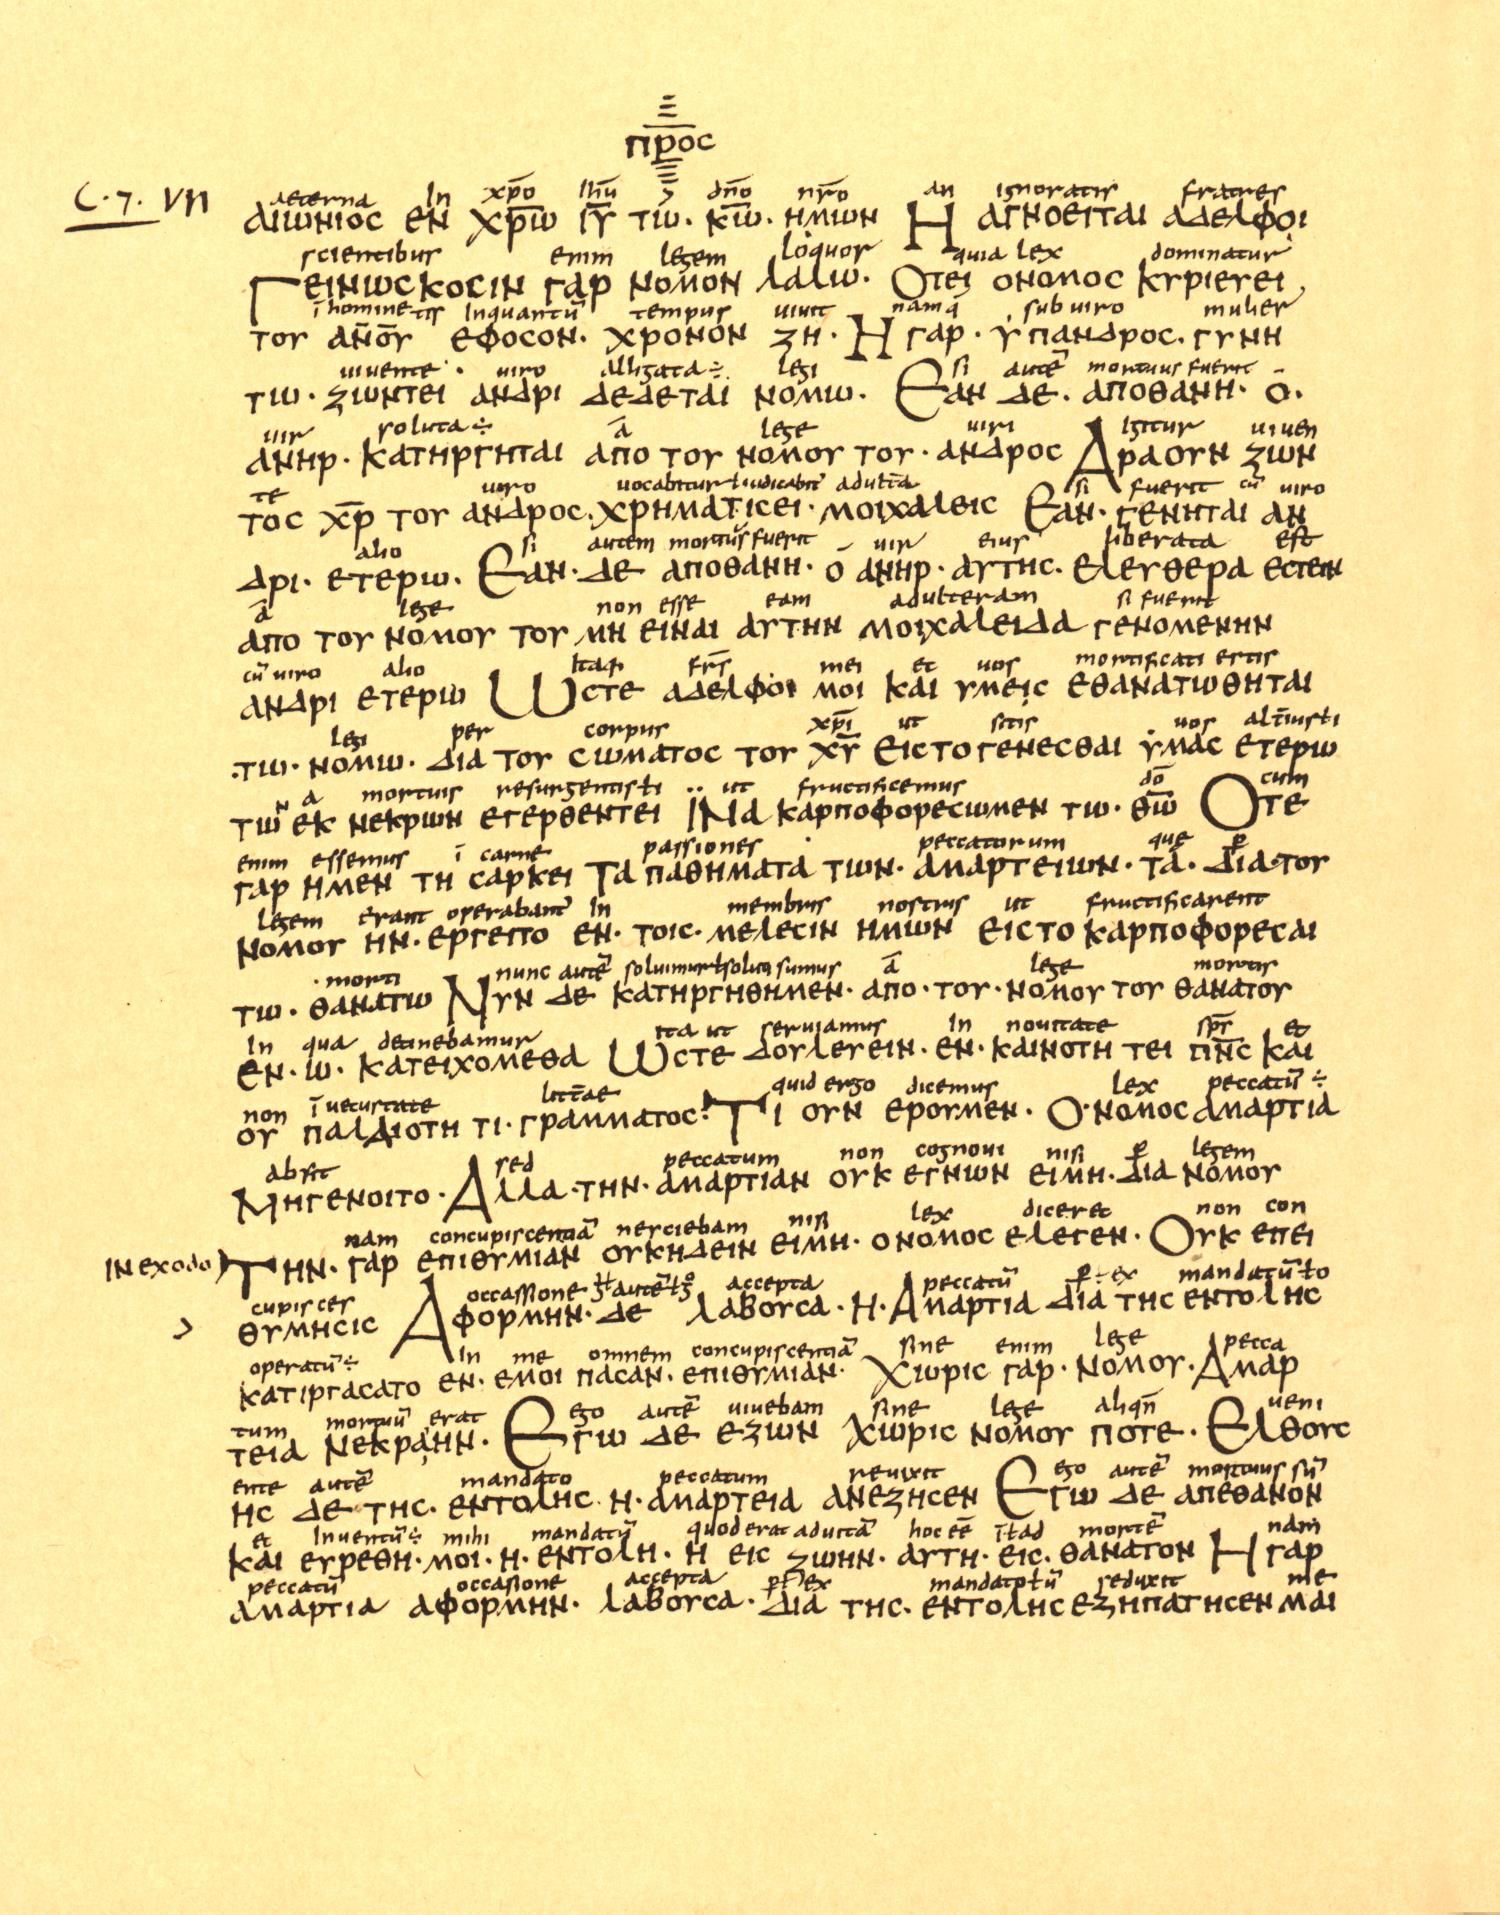 προς
C. 7. VII
aeterna In xp̅o Ih̅u dn̅o nr̅o an ignoratis fratres
ΑΙΩΝΙΟC ΕΝ ΧΡ̅Ω ΙΥ̅ ΤΩ· ΚΩ̅· ΗΜΙΩΝ Η ΑΓΝΟΕΙΤΑΙ ΑΔΕΛΦΟΙ
scientibus enim legem loquor quia lex dominatur
ΓΕΙΝΙΩCΚΟCΙΝ ΓΑΡ ΝΟΜΟΝ ΛΑΛΙΩ· ΟΤΕΙ ΟΝΟΜΟC ΚΥΡΙΕΥΕΙ
i̅ homine Inquantu̅ tempus uiuit namq sub uiro mulier
ΤΟΥ ΑΝ̅ΟΥ ΕΦΟCΟΝ· ΧΡΟΝΟΝ ΖΗ· Η ΓΑΡ· ΥΠΑΝΔΡΟC· ΓΥΝΗ
uiuente · uiro alligata ÷ legi si aute̅ mortuus fuerit
ΤΩ· ΖΙΩΝΤΕΙ ΑΝΔΡΙ ΔΕΔΕΤΑΙ ΝΟΜΩ· ΕΑΝ ΔΕ· ΑΠΟΘΑΝΗ· Ο·
uir soluta ÷ a̅ lege uiri Igitur uiuen
ΑΝΗΡ· ΚΑΤΗΡΓΗΤΑΙ ΑΠΟ ΤΟΥ ΝΟΜΟΥ ΤΟΥ· ΑΝΔΡΟC ΑΡΑΟΥΝ ΖΩΝ
te uiro uocabitur ł iudicabit̅ adult̅a si fuerit cu̅ uiro
ΤΟC ΧΡ̅ ΤΟΥ ΑΝΔΡΟC· ΧΡΗΜΑΤΙCΕΙ· ΜΟΙΧΑΛΕΙC ΕΑΝ· ΓΕΝΗΤΑΙ ΑΝ
alio si autem mortuus fuerit uir eius liberata est
ΔΡΙ· ΕΤΕΡΩ· ΕΑΝ· ΔΕ ΑΠΟΘΑΝΗ· Ο ΑΝΗΡ· ΑΥΤΗC· ΕΛΕΥΘΕΡΑ ΕCΤΕΙΝ
a̅ lege non esse eam adulteram si fuerit
ΑΠΟ ΤΟΥ ΝΟΜΟΥ ΤΟΥ ΜΗ ΕΙΝΑΙ ΑΥΤΗΝ ΜΟΙΧΑΛΕΙΔΑ ΓΕΝΟΜΕΝΗΝ
cu̅ uiro alio Itaq fr̅s mei et uos mortificati estis
ΑΝΔΡΙ ΕΤΕΡΙΩ ΩCΤΕ ΑΔΕΛΦΟΙ ΜΟΙ ΚΑΙ ΥΜΕΙC ΕΘΑΝΑΤΙΩΘΗΤΑΙ
legi per corpus xp̅i ut sitis uos
·ΤΩ· ΝΟΜΙΩ· ΔΙΑ ΤΟΥ CΩΜΑΤΟC ΤΟΥ ΧΥ̅ ΕΙCΤΟ ΓΕΝΕCΘΑΙ ΥΜΑC ΕΤΕΡΙΩ
a mortuis resurgentis ·· ut fructificemus do̅ cum
ΤΩΝ ΕΚ ΝΕΚΡΙΩΝ ΕΓΕΡΘΕΝΤΕΙ ΙΝΑ ΚΑΡΠΟΦΟΡΕCΙΩΜΕΝ ΤΩ· ΘΩ̅ ΟΤΕ
enim essemus i̅ carne passiones peccatorum que p̅
ΓΑΡ ΗΜΕΝ ΤΗ CΑΡΚΕΙ ΤΑ ΠΑΘΗΜΑΤΑ ΤΙΩΝ· ΑΜΑΡΤΕΙΩΝ· ΤΑ· ΔΙΑ·ΤΟΥ
legem erant operabant̅ In membris nostris ut fructificarent
ΝΟΜΟΥ ΗΝ· ΕΡΓΕΙΤΟ ΕΝ· ΤΟΙC· ΜΕΛΕCΙΝ ΗΜΙΩΝ ΕΙCΤΟ ΚΑΡΠΟΦΟΡΕCΑΙ
·morti nunc aute̅ soluimur ł soluti sumus a̅ lege mortis
ΤΩ· ΘΑΝΑΤΙΩ ΝΥΝ ΔΕ ΚΑΤΗΡΓΗΘΗΜΕΝ· ΑΠΟ· ΤΟΥ· ΝΟΜΟΥ ΤΟΥ ΘΑΝΑΤΟΥ
In qua detinebamur Ita ut seruiamus In nouitate sp̅s et
ΕΝ· Ω· ΚΑΤΕΙΧΟΜΕΘΑ ΩCΤΕ ΔΟΥΛΕΥΕΙΝ· ΕΝ· ΚΑΙΝΟΤΗ ΤΕΙ ΠΝ̅C ΚΑΙ
non i̅ uetustate litt̅ae quid ergo dicemus lex peccatu̅ ÷
ΟΥ ΠΑΛΑΙΟΤΗ ΤΙ· ΓΡΑΜΜΑΤΟC· ΤΙ ΟΥΝ ΕΡΟΥΜΕΝ· Ο·ΝΟΜΟC ΑΜΑΡΤΙΑ
absit sed peccatum non cognoui nisi p̅ legem
ΜΗΓΕΝΟΙΤΟ· ΑΛΛΑ·ΤΗΝ· ΑΜΑΡΤΙΑΝ ΟΥΚ ΕΓΝΙΩΝ ΕΙΜΗ· ΔΙΑ ΝΟΜΟΥ
nam concupiscentia̅ nesciebam nisi lex diceret non con
IN EXODO ΤΗΝ· ΓΑΡ ΕΠΙΘΥΜΙΑΝ ΟΥΚΗΔΕΙΝ ΕΙΜΗ· ΟΝΟΜΟC ΕΛΕΓΕΝ· ΟΥΚ ΕΠΕΙ
cupisces occassione accepta peccatu̅ p̅ ÷ ex mandatu̅ ł o
ΘΥΜΗCΙC ΑΦΟΡΜΗΝ· ΔΕ ΛΑΒΟΥCΑ· Η· ΑΜΑΡΤΙΑ ΔΙΑ ΤΗC ΕΝΤΟΛΗC
operatu̅ ÷ In me omnem concupiscentia̅ sine enim lege pecca
ΚΑΤΙΡΓΑCΑΤΟ ΕΝ· ΕΜΟΙ ΠΑCΑΝ· ΕΠΙΘΥΜΙΑΝ· ΧΙΩΡΙC ΓΑΡ· ΝΟΜΟΥ· ΑΜΑΡ
tum mortuu̅ erat ego aute̅ uiuebam sine lege aliqn̅ ueni
ΤΕΙΑ ΝΕΚΡΑΗΝ· ΕΓΙΩ ΔΕ ΕΖΙΩΝ ΧΙΩΡΙC ΝΟΜΟΥ ΠΟΤΕ· ΕΛΘΟΥC
ente aute̅ mandato peccatum reuixit ego aute̅ mortuus su̅
ΗC ΔΕ ΤΗC· ΕΝΤΟΛΗC· Η· ΑΜΑΡΤΕΙΑ ΑΝΕΖΗCΕΝ ΕΓΙΩ ΔΕ ΑΠΕΘΑΝΟΝ
et Inuentu̅ ÷ mihi mandatu̅ quod erat ad uita̅ hoc ee̅ ad morte̅ nam
ΚΑΙ ΕΥΡΕΘΗ· ΜΟΙ· Η· ΕΝΤΟΛΗ· Η ΕΙC ΖΩΗΝ· ΑΥΤΗ· ΕΙC· ΘΑΝΑΤΟΝ Η ΓΑΡ
peccatu̅ occasione accepta p̅ ex mandato ł u̅ seduxit me
ΑΜΑΡΤΙΑ ΑΦΟΡΜΗΝ· ΛΑΒΟΥCΑ· ΔΙΑ ΤΗC· ΕΝΤΟΛΗC ΕΖΗΠΑΤΗCΕΝ ΜΑΙ